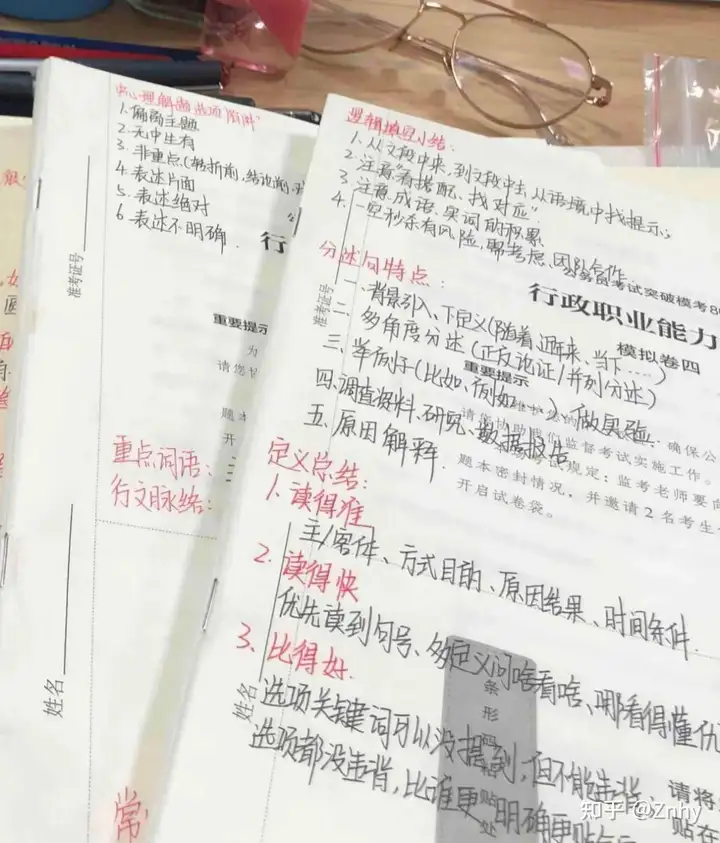 中心理解题选项"陷阱"
1.偏离主题
2.无中生有
3.非重点(转折前,结论前,
4.表述片面
5.表述绝对
6.表述不明确.
准考证号
行
重要提示
为
请您
题本
开
重点词语:
行文脉络:
姓名
常
逻辑填空小结:
1.从文段中来,到文段中去,从语境中找提示;
2.注意"看搭配、找对应"
3.注意成语、实词的积累
4.一空秒杀有风险,需考虑、团队合作.
分述句特点:
公务员考试突破模考8
行政职业能力
模拟卷四
准考证号
一、背景引入、下定义(随着、近年来、当下……)
二、多角度分述(正反论证/并列分述)
三、举例子(比如、例如……)做实验.
重要提示
四.调查资料、研究、数据报告
五、原因解释.
确保公
请您协助我们监督考试实施工作。
考试规定:监考老师要向
题本密封情况,并邀请2名考生
开启试卷袋。
定义总结:
1.读得准
主/客体、方式目的、原因结果、时间条件.
2.读得快
优先读到句号、多定义问啥看啥、哪看得懂优
3.比得好.
选项关键词可以没提到,但不能违背、
选项都没违背,比谁更明确更贴合
姓名
条形码粘贴处
请将
贴在
知乎 @Znhy